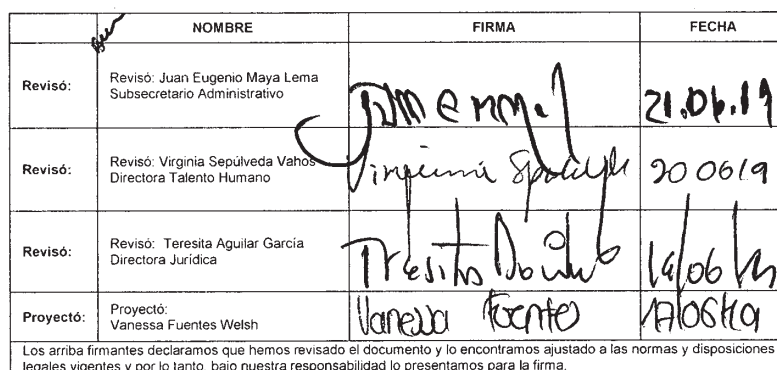 NOMBRE FIRMA FECHA
Revisó: Revisó: Juan Eugenio Maya Lema
Subsecretario Administrativo
21.06.19
Revisó: Revisó: Virginia Sepúlveda Vahos
Directora Talento Humano
Virginia 20 06/19
Revisó: Revisó: Teresita Aguilar García
Directora Jurídica
Teresita
Proyectó: Proyectó:
Vanessa Fuentes Welsh
Vanessa Fuentes 17/06/19
Los arriba firmantes declaramos que hemos revisado el documento y lo encontramos ajustado a las normas y disposiciones
legales vigentes y por lo tanto, bajo nuestra responsabilidad lo presentamos para la firma.